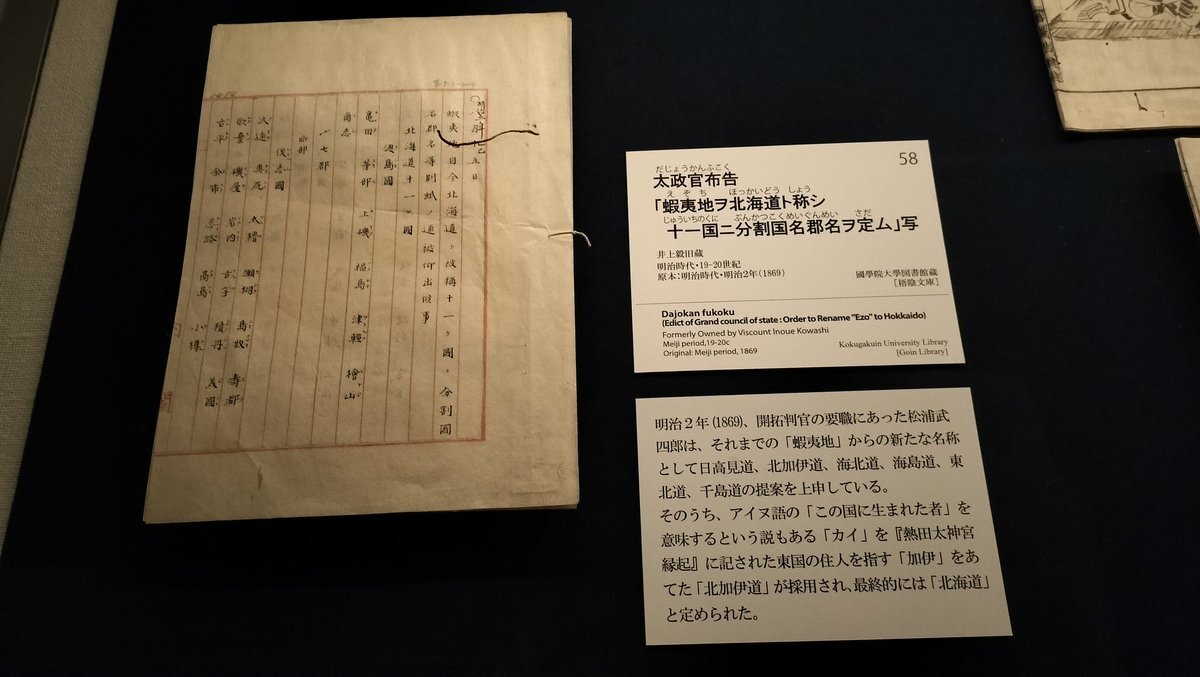 蝦夷地自今北海道ト被稱十一ヶ國ニ分割國
名郡名等別紙ノ通被仰出候事
北海道十一ヶ國
渡島國
亀田 茅部 上磯 福島 津輕 檜山
爾志
七郡
後志國
久遠 奥尻 太櫓 瀬棚 島牧 壽都
歌棄 磯屋 岩内 古宇 積丹 美國
古平 余市 忍路 高島 小樽
58
だじょうかんふこく
太政官布告
えぞち ほっかいどう しょう
「蝦夷地ヲ北海道ト称シ
じゅういちのくに ぶんかつこくめいぐんめい さだ
十一国ニ分割国名郡名ヲ定ム」写
井上毅旧蔵
明治時代・19-20世紀
原本:明治時代・明治2年(1869)
國學院大學図書館蔵
[梧陰文庫]
Dajokan fukoku
(Edict of Grand council of state : Order to Rename "Ezo" to Hokkaido)
Formerly Owned by Viscount Inoue Kowashi
Meiji period,19-20c
Original: Meiji period, 1869
Kokugakuin University Library
[Goin Library]
明治２年(1869)、開拓判官の要職にあった松浦武
四郎は、それまでの「蝦夷地」からの新たな名称
として日高見道、北加伊道、海北道、海島道、東
北道、千島道の提案を上申している。
そのうち、アイヌ語の「この国に生まれた者」を
意味するという説もある「カイ」を『熱田太神宮
縁起』に記された東国の住人を指す「加伊」をあ
てた「北加伊道」が採用され、最終的には「北海道」
と定められた。